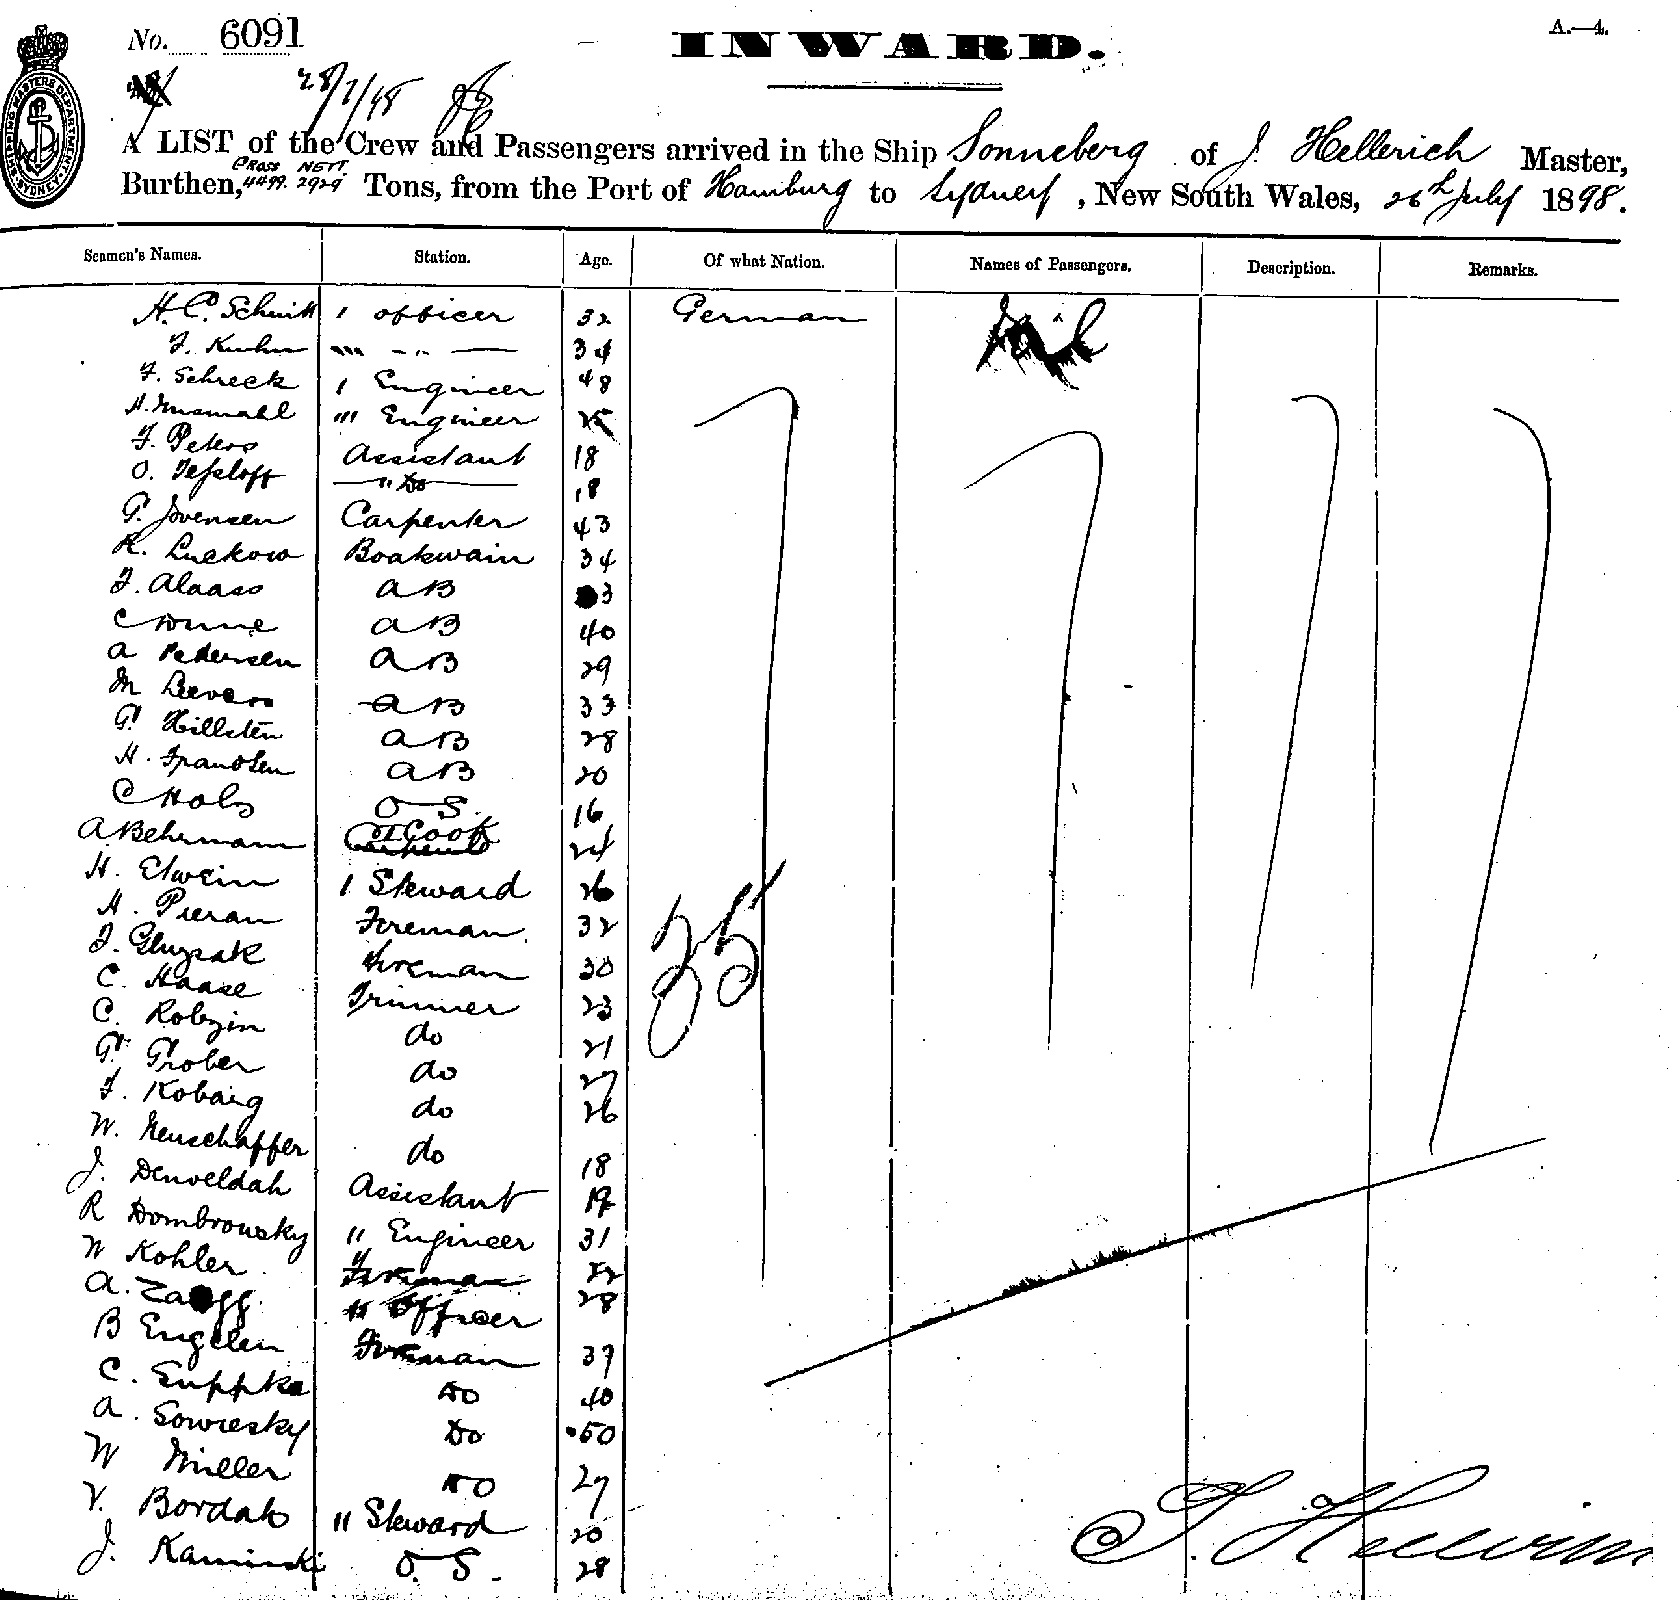 No. 6091
INWARD.
A.—4.
28/7/98
A LIST of the Crew and Passengers arrived in the Ship Sonneberg of J. Hellerich Master,
Burthen, GROSS 4499. NETT. 2929 Tons, from the Port of Hamburg to Sydney, New South Wales, 26th July 1898.
Seamen's Names. Station. Age. Of what Nation. Names of Passengers. Description. Remarks.
H. C. Schmitt 1 officer 32 German Nil
F. Kuhn "" - " - 34
F. Schreck 1 Engineer 48
H. ""' Engineer 25
F. Peters Assistant 18
O. Tessloff " Do 18
P. Jovensen Carpenter 43
R. Luckow Boatswain 34
F. Alaass AB 3
C AB 40
A Petersen AB 29
M Leevers AB 33
G. Hillsten AB 28
H. AB 20
C Hols O S. 16
A Behrmann Cook 24
H. Elwein 1 Steward 26
H. Pieran Fireman. 32
F. Gluysak Fireman 30
C. Haase Trimmer 23
C. Robzin do 21
P. Prober do 27
F. Kobarg do 26
W. Neuschaffer do 18
J. Denveldah Assistant 19
R Dombrowsky " Engineer 31
W Kohler Fireman 22
A. " Officer 28
B Engelen Fireman 37
C. Suppka Do 40
A. Sowresky Do 50
W Muller Do 27
V. Bordah " Steward 20
J. Kaminski O. S. 28
35